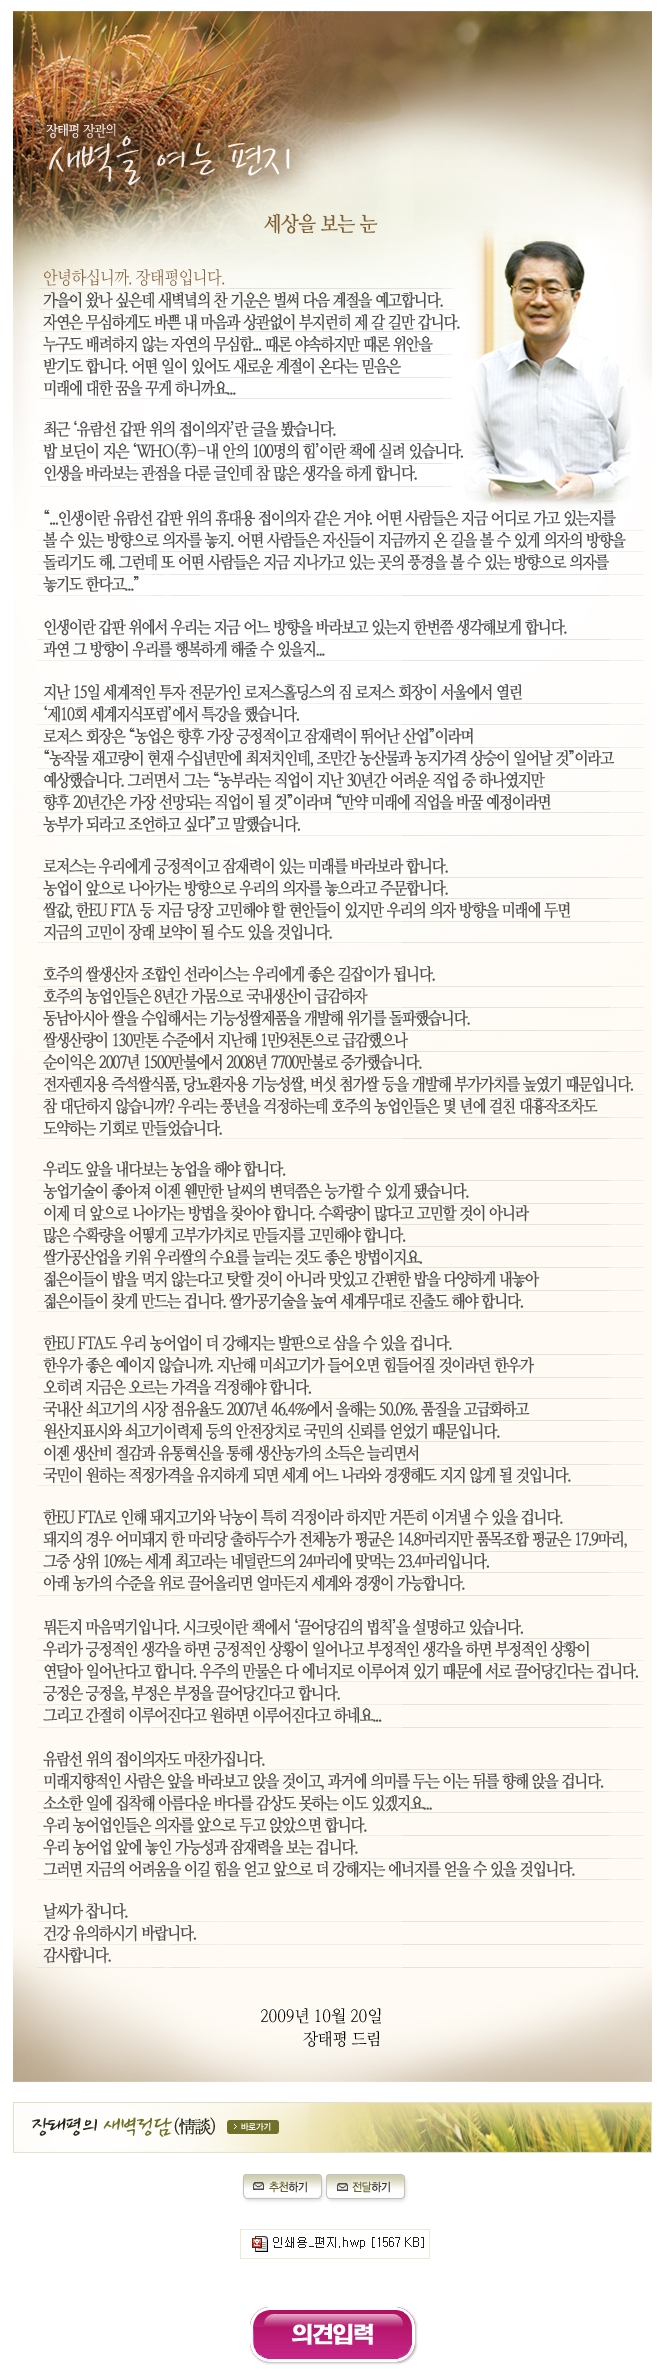 장태평 장관의
새벽을 여는 편지
세상을 보는 눈
안녕하십니까. 장태평입니다.
가을이 왔나 싶은데 새벽녘의 찬 기운은 벌써 다음 계절을 예고합니다.
자연은 무심하게도 바쁜 내 마음과 상관없이 부지런히 제 갈 길만 갑니다.
누구도 배려하지 않는 자연의 무심함... 때론 야속하지만 때론 위안을
받기도 합니다. 어떤 일이 있어도 새로운 계절이 온다는 믿음은
미래에 대한 꿈을 꾸게 하니까요...
최근 ‘유람선 갑판 위의 접이의자’란 글을 봤습니다.
밥 보딘이 지은 ‘WHO(후)-내 안의 100명의 힘’이란 책에 실려 있습니다.
인생을 바라보는 관점을 다룬 글인데 참 많은 생각을 하게 합니다.
“...인생이란 유람선 갑판 위의 휴대용 접이의자 같은 거야. 어떤 사람들은 지금 어디로 가고 있는지를
볼 수 있는 방향으로 의자를 놓지. 어떤 사람들은 자신들이 지금까지 온 길을 볼 수 있게 의자의 방향을
돌리기도 해. 그런데 또 어떤 사람들은 지금 지나가고 있는 곳의 풍경을 볼 수 있는 방향으로 의자를
놓기도 한다고...”
인생이란 갑판 위에서 우리는 지금 어느 방향을 바라보고 있는지 한번쯤 생각해보게 합니다.
과연 그 방향이 우리를 행복하게 해줄 수 있을지...
지난 15일 세계적인 투자 전문가인 로저스홀딩스의 짐 로저스 회장이 서울에서 열린
‘제10회 세계지식포럼’에서 특강을 했습니다.
로저스 회장은 “농업은 향후 가장 긍정적이고 잠재력이 뛰어난 산업”이라며
“농작물 재고량이 현재 수십년만에 최저치인데, 조만간 농산물과 농지가격 상승이 일어날 것”이라고
예상했습니다. 그러면서 그는 “농부라는 직업이 지난 30년간 어려운 직업 중 하나였지만
향후 20년간은 가장 선망되는 직업이 될 것”이라며 “만약 미래에 직업을 바꿀 예정이라면
농부가 되라고 조언하고 싶다”고 말했습니다.
로저스는 우리에게 긍정적이고 잠재력이 있는 미래를 바라보라 합니다.
농업이 앞으로 나아가는 방향으로 우리의 의자를 놓으라고 주문합니다.
쌀값, 한EU FTA 등 지금 당장 고민해야 할 현안들이 있지만 우리의 의자 방향을 미래에 두면
지금의 고민이 장래 보약이 될 수도 있을 것입니다.
호주의 쌀생산자 조합인 선라이스는 우리에게 좋은 길잡이가 됩니다.
호주의 농업인들은 8년간 가뭄으로 국내생산이 급감하자
동남아시아 쌀을 수입해서는 기능성쌀제품을 개발해 위기를 돌파했습니다.
쌀생산량이 130만톤 수준에서 지난해 1만9천톤으로 급감했으나
순이익은 2007년 1500만불에서 2008년 7700만불로 증가했습니다.
전자렌지용 즉석쌀식품, 당뇨환자용 기능성쌀, 버섯 첨가쌀 등을 개발해 부가가치를 높였기 때문입니다.
참 대단하지 않습니까? 우리는 풍년을 걱정하는데 호주의 농업인들은 몇 년에 걸친 대흉작조차도
도약하는 기회로 만들었습니다.
우리도 앞을 내다보는 농업을 해야 합니다.
농업기술이 좋아져 이젠 웬만한 날씨의 변덕쯤은 능가할 수 있게 됐습니다.
이제 더 앞으로 나아가는 방법을 찾아야 합니다. 수확량이 많다고 고민할 것이 아니라
많은 수확량을 어떻게 고부가가치로 만들지를 고민해야 합니다.
쌀가공산업을 키워 우리쌀의 수요를 늘리는 것도 좋은 방법이지요.
젊은이들이 밥을 먹지 않는다고 탓할 것이 아니라 맛있고 간편한 밥을 다양하게 내놓아
젊은이들이 찾게 만드는 겁니다. 쌀가공기술을 높여 세계무대로 진출도 해야 합니다.
한EU FTA도 우리 농어업이 더 강해지는 발판으로 삼을 수 있을 겁니다.
한우가 좋은 예이지 않습니까. 지난해 미쇠고기가 들어오면 힘들어질 것이라던 한우가
오히려 지금은 오르는 가격을 걱정해야 합니다.
국내산 쇠고기의 시장 점유율도 2007년 46.4%에서 올해는 50.0%. 품질을 고급화하고
원산지표시와 쇠고기이력제 등의 안전장치로 국민의 신뢰를 얻었기 때문입니다.
이젠 생산비 절감과 유통혁신을 통해 생산농가의 소득은 늘리면서
국민이 원하는 적정가격을 유지하게 되면 세계 어느 나라와 경쟁해도 지지 않게 될 것입니다.
한EU FTA로 인해 돼지고기와 낙농이 특히 걱정이라 하지만 거뜬히 이겨낼 수 있을 겁니다.
돼지의 경우 어미돼지 한 마리당 출하두수가 전체농가 평균은 14.8마리지만 품목조합 평균은 17.9마리,
그중 상위 10%는 세계 최고라는 네덜란드의 24마리에 맞먹는 23.4마리입니다.
아래 농가의 수준을 위로 끌어올리면 얼마든지 세계와 경쟁이 가능합니다.
뭐든지 마음먹기입니다. 시크릿이란 책에서 ‘끌어당김의 법칙’을 설명하고 있습니다.
우리가 긍정적인 생각을 하면 긍정적인 상황이 일어나고 부정적인 생각을 하면 부정적인 상황이
연달아 일어난다고 합니다. 우주의 만물은 다 에너지로 이루어져 있기 때문에 서로 끌어당긴다는 겁니다.
긍정은 긍정을, 부정은 부정을 끌어당긴다고 합니다.
그리고 간절히 이루어진다고 원하면 이루어진다고 하네요...
유람선 위의 접이의자도 마찬가집니다.
미래지향적인 사람은 앞을 바라보고 앉을 것이고, 과거에 의미를 두는 이는 뒤를 향해 앉을 겁니다.
소소한 일에 집착해 아름다운 바다를 감상도 못하는 이도 있겠지요...
우리 농어업인들은 의자를 앞으로 두고 앉았으면 합니다.
우리 농어업 앞에 놓인 가능성과 잠재력을 보는 겁니다.
그러면 지금의 어려움을 이길 힘을 얻고 앞으로 더 강해지는 에너지를 얻을 수 있을 것입니다.
날씨가 찹니다.
건강 유의하시기 바랍니다.
감사합니다.
2009년 10월 20일
장태평 드림
장태평의 새벽정담(情談) 바로가기
추천하기 전달하기
인쇄용_편지.hwp [1567 KB]
의견입력